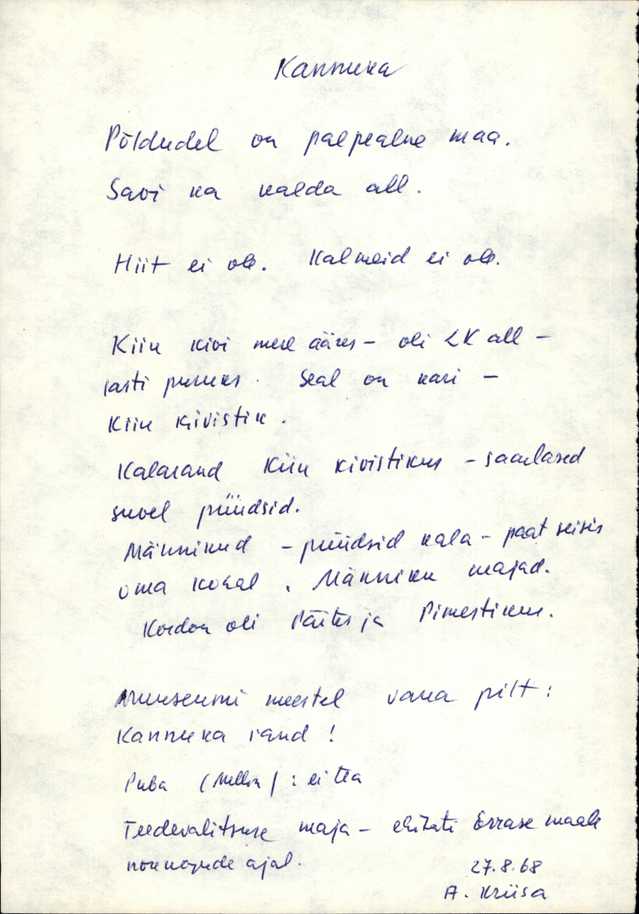 Kannuka
Põldudel on paepealne maa.
Savi ka kalda all.
Hiit ei ole. Kalmeid ei ole.
Kiiu kivi mere ääres – oli LK all –
lasti puruks. Seal on kari –
Kiiu kivistik.
Kalarand Kiiu kivistikus – saarlased
suvel püüdsid.
Männikud – püüdsid kala – paat seisis
oma kohal. Männiku majad.
Kordon oli Päites ja Pimestikus.
Muuseumi meestel vana pilt:
Kannuka rand!
Puba ( ): ei tea
Teedevalitsuse maja – ehitati Errase maale
nõukogude ajal.
27.8.68
A. Kriisa